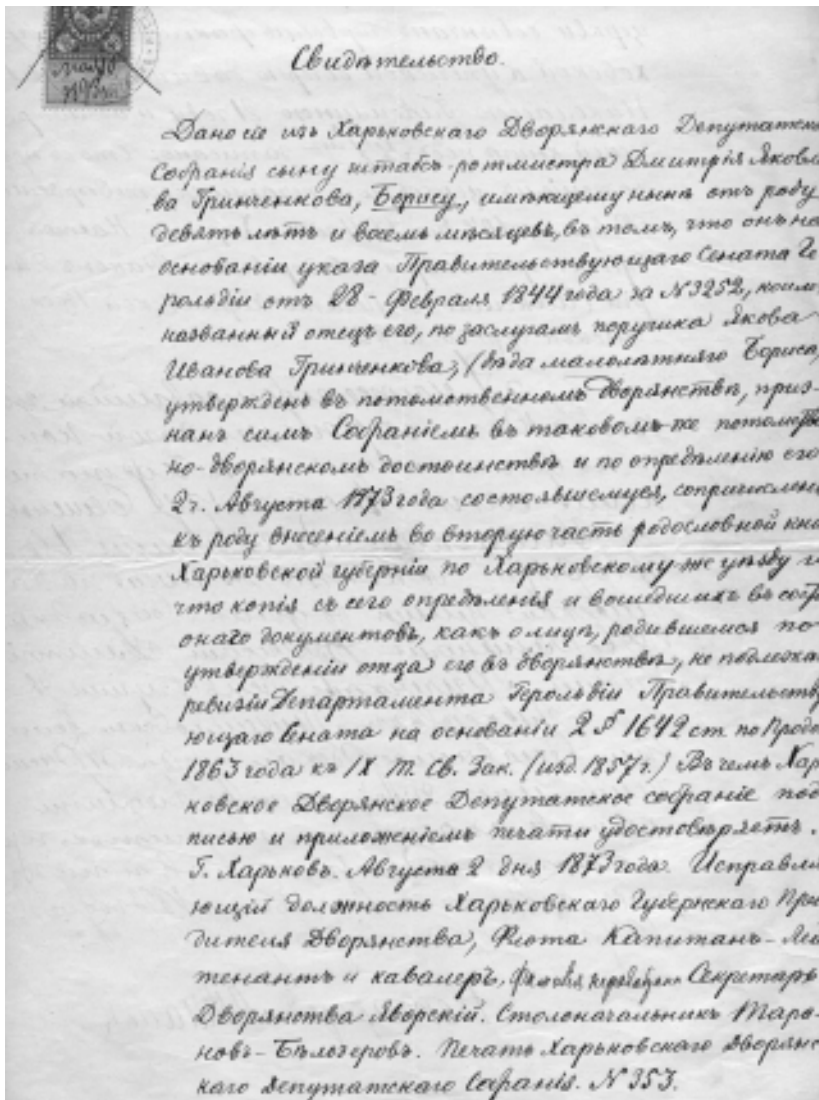 Свидѣтельство.
Дано сіе изъ Харьковскаго Дворянскаго Депутатск
Собранія сыну штабсъ-ротмистра Дмитрія Яковл
ва Гринченкова, Борису, имѣющему нынѣ отъ роду
девять лѣтъ и восемь мѣсяцевъ, въ томъ, что онъ на
основаніи указа Правительствующаго Сената Ге
рольдіи отъ 28-Февраля 1844 года за №3252, коим
названный отецъ его, по заслугамъ поручика Якова
Иванова Гринченкова, (дѣда малолѣтняго Бориса,
утвержденъ въ потомственномъ дворянствѣ, приз-
нанъ симъ Собраніемъ въ таковомъ-же потомств
но-дворянскомъ достоинствѣ и по опредѣленію его
2 г. Августа 1873 года состоявшемуся, сопричислен
къ роду внесеніемъ во вторую часть родословной кни
Харьковской губерніи по Харьковскому-же уѣзду и
что копія съ сего опредѣленія и вошедшихъ въ сост
онаго документовъ, какъ о лицѣ, родившемся по
утвержденіи отца его въ дворянствѣ, не подлежа
ревизіи Департамента Герольдіи Правительств
ющаго Сената на основаніи 2 § 1642 ст. по Продо
1863 года къ IX Т. Св. Зак. (изд. 1857 г.) Въ чемъ Хар
ковское Дворянское Депутатское собраніе под
писью и приложеніемъ печати удостовѣряетъ.
Г. Харьковъ. Августа 2 дня 1873 года. Исправля
ющій должность Харьковскаго Губернскаго Пре
дителя Дворянства, Флота Капитанъ-Лей
тенантъ и кавалеръ, Секретарь
Дворянства Яворскій. Столоначальникъ Мара-
новъ-Бѣлозеровъ. Печать Харьковскаго Дворянс
каго Депутатскаго Собранія. № 353.